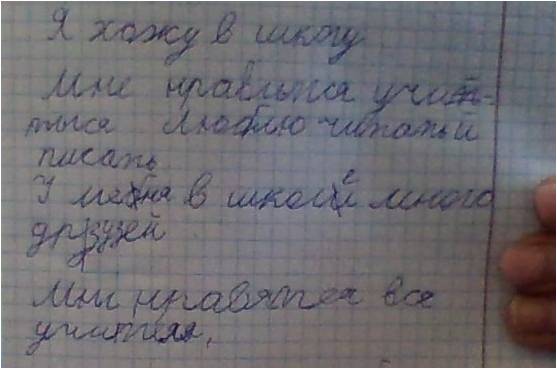 Я хажу в шкогу
Мне нравлься учит-
тыся Люблю читать и
писать
У меня в школе много
друзей
Мни нравятся все
учителя,